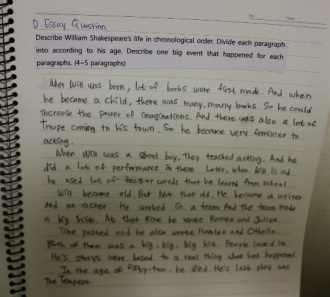 D. Essay Question
Describe William Shakespeare's life in chronological order. Divide each paragraph
into according to his age. Describe one big event that happened for each
paragraphs. (4~5 paragraphs)
When Will was born, lot of books were first made. And when
he became a child, there was many, many books. So he could
increase the power of imaginations. And there was also a lot of
troupe coming to his town. So he became very familier to
acting.
When Will was a school boy, They teached acting. And he
did a lot of performance in there. Later, when Will is old
he used lot of words that he learned from school.
Will became old. But Not that old. He became a writer
and an acter. He worked in a team. And the team made
a big hits. At that time he wrote Romeo and Juliet.
Time passed and he also wrote Hamlet and Othello.
Both of them was a big, big, big hit. People loved it.
He's storys were based to a real thing what has happened.
In the age of fifty-two, he died. He's last play was
The Tempest.